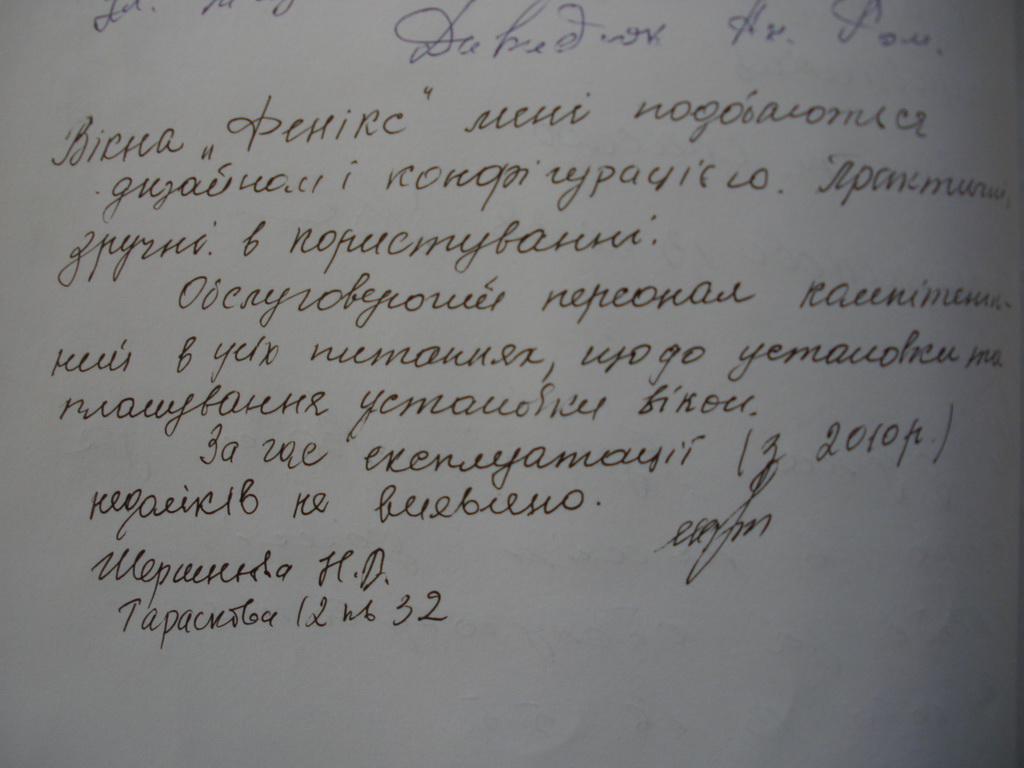 Давидюк Ан. Ром.
Вікна „Фенікс“ мені подобаються
дизайном і конфігурацією. Практичні,
зручні. в користуванні.
Обслуговуючий персонал компітент-
ний в усіх питаннях, щодо установки та
планування установки вікон.
За час експлуатації (з 2010 р.)
недоліків не виявлено.
Н.В.
Тараскова 12 кв 32